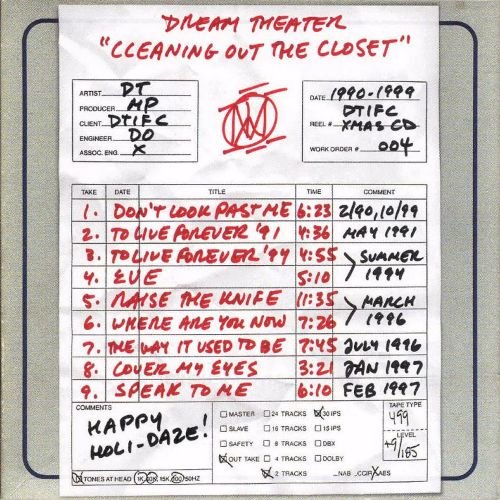 DREAM THEATER
"CLEANING OUT THE CLOSET"
ARTIST DT
PRODUCER MP
CLIENT DTIFC
ENGINEER DO
ASSOC. ENG. X
DATE 1990-1999
DTIFC
REEL # XMAS CD
WORK ORDER # 004
TAKE DATE TITLE TIME COMMENT
1. DON'T LOOK PAST ME 6:23 2/90, 10/99
2. TO LIVE FOREVER '91 4:36 MAY 1991
3. TO LIVE FOREVER '94 4:55 SUMMER
4. EVE 5:10 1994
5. RAISE THE KNIFE 11:35 MARCH
6. WHERE ARE YOU NOW 7:26 1996
7. THE WAY IT USED TO BE 7:45 JULY 1996
8. COVER MY EYES 3:21 JAN 1997
9. SPEAK TO ME 6:10 FEB 1997
COMMENTS
HAPPY
HOLI-DAZE!
MASTER 24 TRACKS 30 IPS
SLAVE 16 TRACKS 15 IPS
SAFETY 8 TRACKS DBX
OUT TAKE 4 TRACKS DOLBY
2 TRACKS NAB CCIR AES
TAPE TYPE
499
LEVEL
+9/185
TONES AT HEAD 1K, 10K, 15K, 100/50HZ